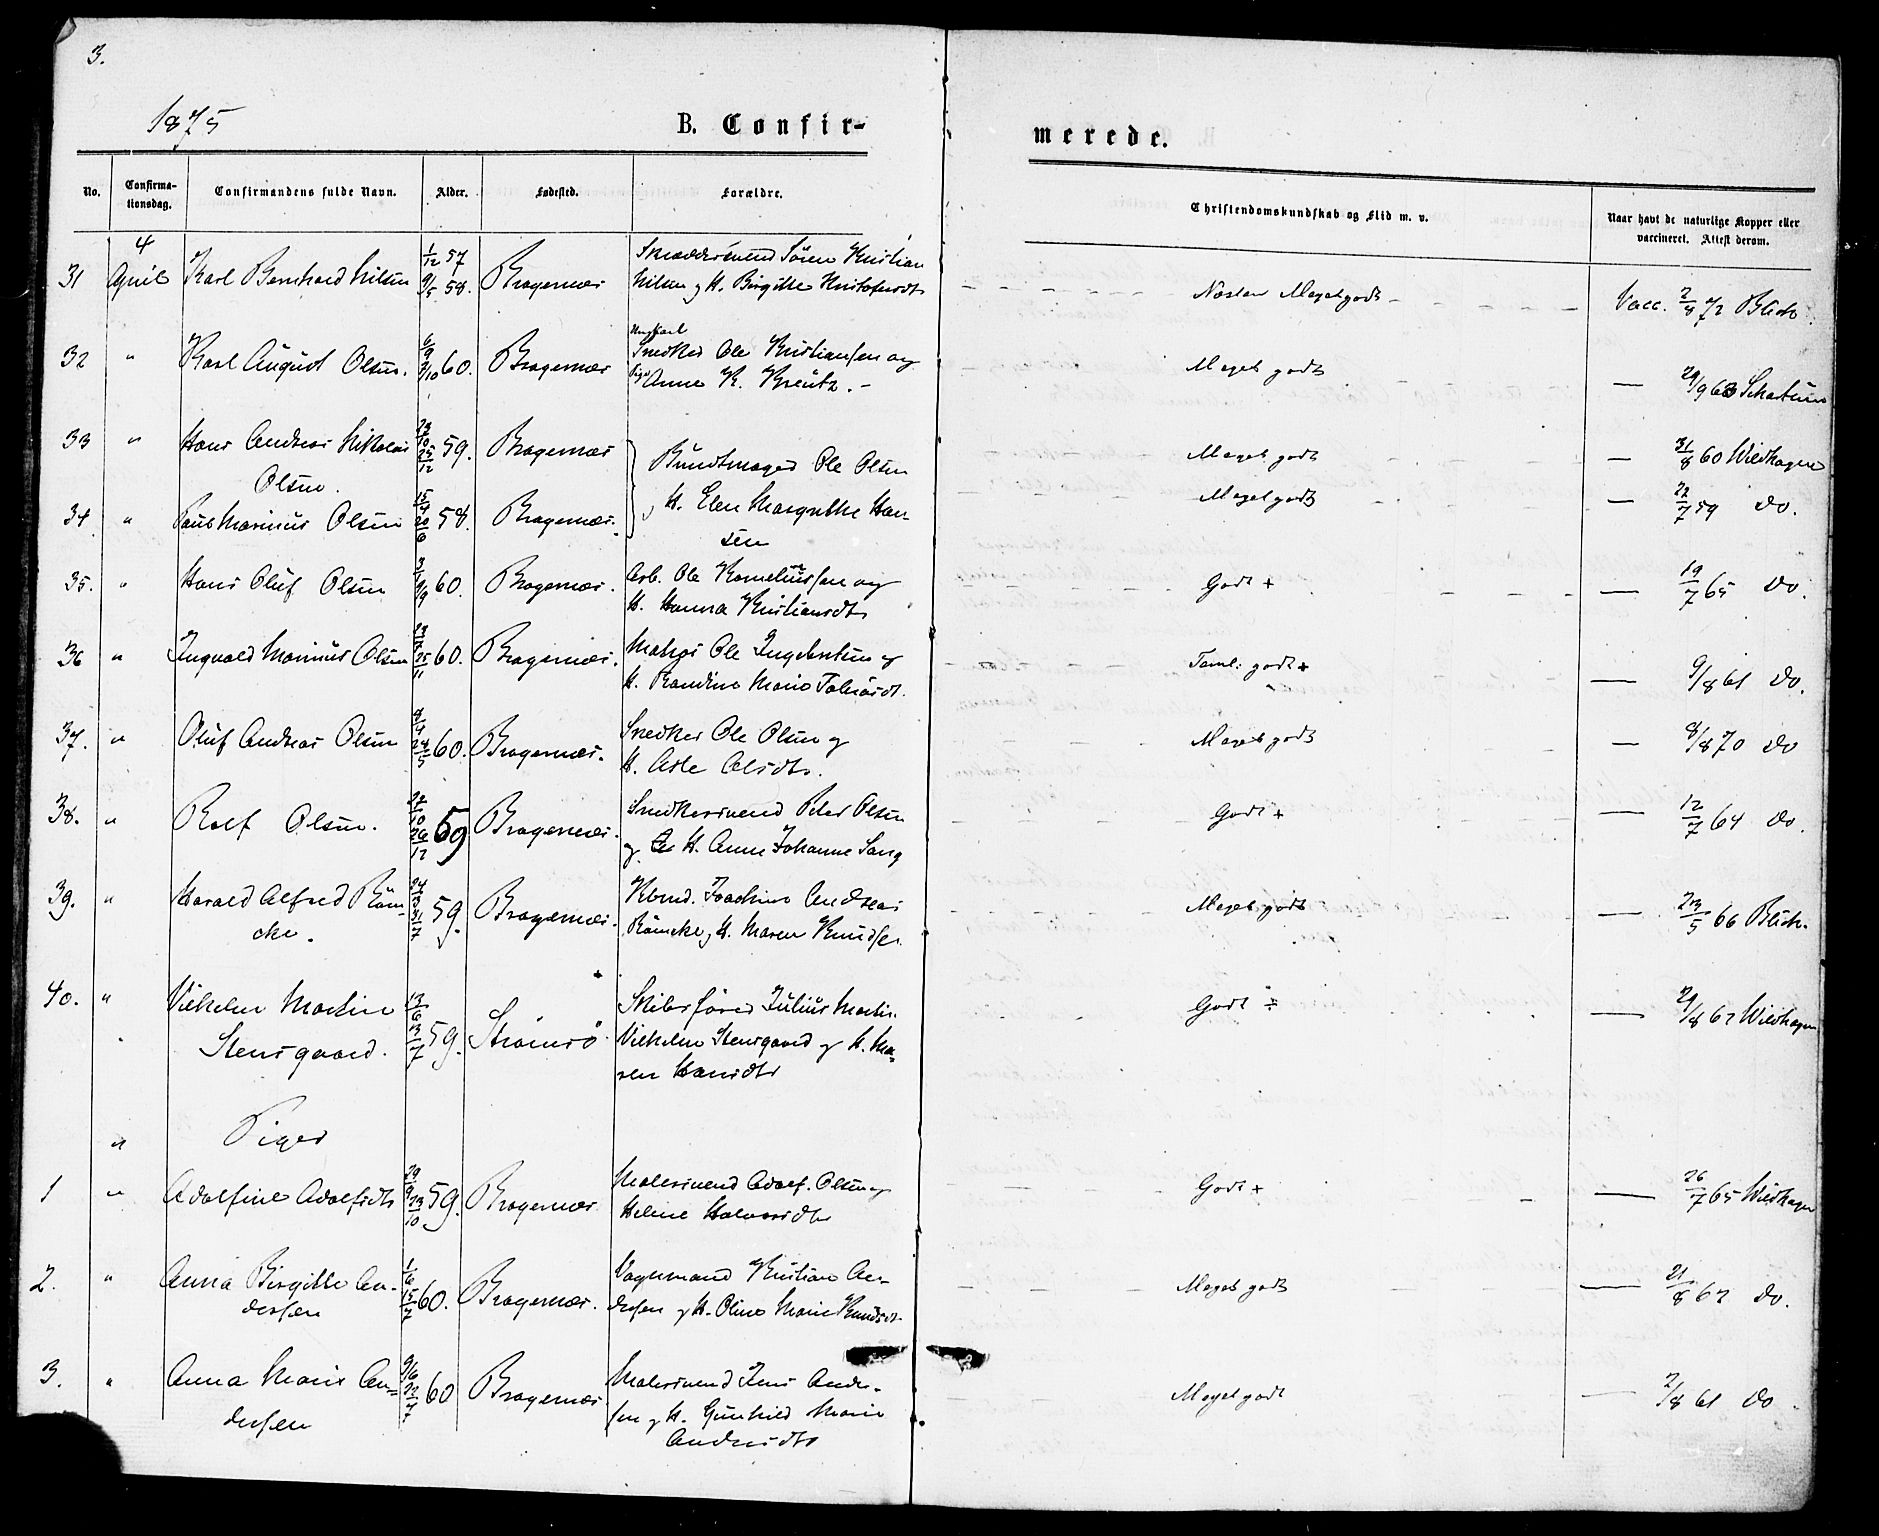 3.
1875
B. Confir-
merede.
No.
Confirma-
tionsdag.
Confirmandens fulde Navn.
Alder.
Fødested.
Forældre.
Christendomskundskab og Flid m. v.
Naar havt de naturlige Kopper eller
vaccineret. Attest derom.
4
31 April Karl Bernhard Nilsen 1/12 57 9/5 58. Bragernæs
Snæddersvend Søren Kristian
Nilsen og H. Birgitte Kristofersdtr
Næsten Meget godt
Vacc. 2/8 72 Blich.
32 " Karl August Olsen. 60. Bragernæs
Ungkarl
Snedker Ole Kristiansen og
Pige Anne K. Kreutz. -
Meget godt
— 29/9 63
33 " Hans Andreas Nikolai
Olsen. 25/12 59. Bragernæs
Buntmager Ole Olsen
Meget godt
— 31/8 60 Wildhagen
34. " Paul Marinius Olsen 15/4 20/6 58. Bragernæs.
og H. Elen Margrethe Han-
sen
Meget godt
— 22/7 59 do.
35. " Hans Oluf Olsen 60. Bragernæs.
Arb. Ole Korneliussen og
H. Hanna Kristiansdtr
Godt +
— 19/7 65 do.
36 " Ingvald Marinius Olsen 25/11 60. Bragernæs.
Ole Ingebretsen og
H. Randine Marie
Taml: godt +
— 9/8 61 do.
37. " Oluf Andreas Olsen 8/4 28/5 60. Bragernæs.
Snedker Ole Olsen og
H. Aste Olsdtr.
Meget godt
— 8/8 70 do
38. " Rolf Olsen. 26/12 59 Bragernæs.
Snedkersvend Peder Olsen
og H. Anne Johanne Sang
Godt +
— 12/7 64 do.
39. " Harald Alfred Röm-
cke. 31/7 59. Bragernæs.
Kbmd. Joachim Andreas
Römcke og H. Maren Knudsen
Meget godt
— 23/5 66 Blich.
40. " Vilhelm Martin
Stensgaard. 13/6 13/7 59. Strömsö
Skibsfører Julius Martin
Vilhelm Stensgaard og H. Ma-
ren Hansdtr
Godt ÷
— 29/8 62 Wildhagen
" Piger
1 " Adolfine Adolfsdtr 29/9 23/10 59. Bragernæs
Malersvend Adolf Olsen og
Helene Halvorsdtr
Godt +
— 26/7 65 Wildhagen
2. " Anna Birgitte An-
dersen 1/6 15/7 60. Bragernæs.
Vognmand Kristian An-
dersen og H. Oline Marie Knudsdtr
Meget godt
— 21/8 62 do.
3. " Anna Marie An-
dersen 9/6 22/7 60 Bragernæs
Malersvend Jens Ander-
sen og H. Gunhild Marie
Andersdtr
Meget godt
— 2/8 61 do